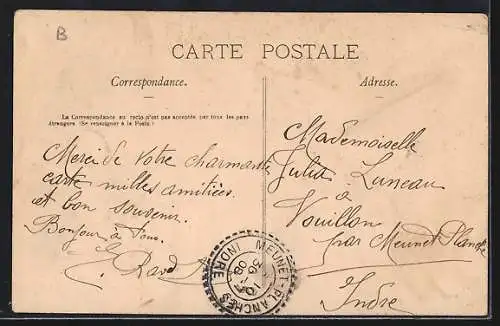 B
CARTE POSTALE
Correspondance.
Adresse.
La Correspondance au recto n'est pas acceptée par tous les pays
étrangers. (Se renseigner à la Poste.)
Merci de votre charmante
carte milles amitiées
et bon souvenir.
Bonjour à tous.
Mademoiselle
Julia Luneau
à
Vouillon
par Meunet Planche
Indre
MEUNET-PLANCHES
INDRE